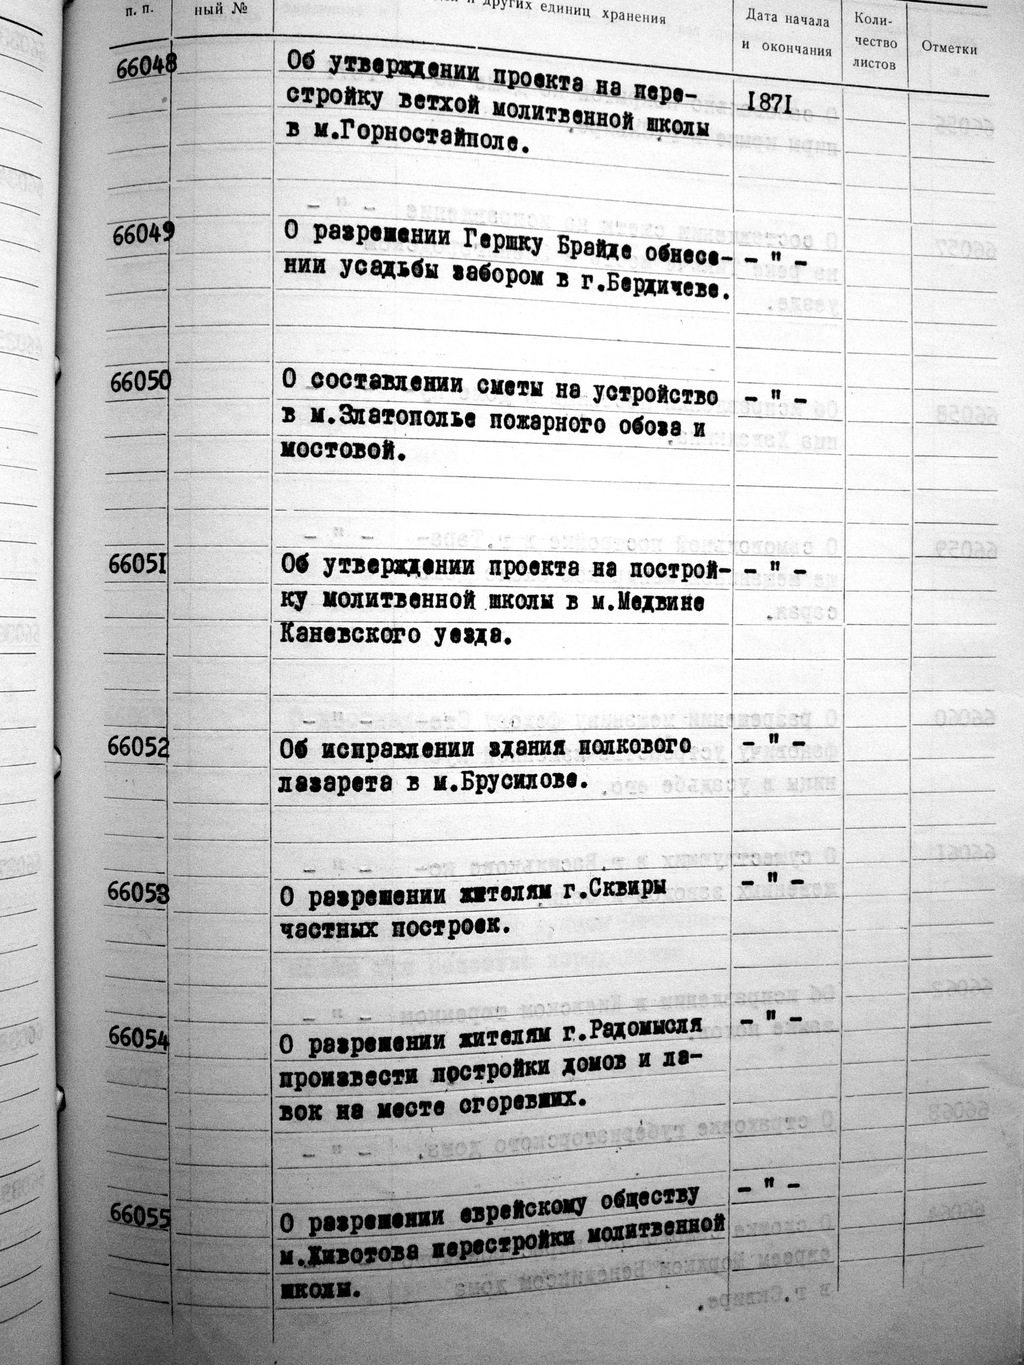 п. п.
ный №
и других единиц хранения
Дата начала
и окончания
Коли-
чество
листов
Отметки
66048
Об утверждении проекта на пере-
стройку ветхой молитвенной школы
в м.Горностайполе.
1871
66049
О разрешении Гершку Брайде обнесе-
нии усадьбы забором в г.Бердичеве.
- " -
66050
О составлении сметы на устройство
в м.Златополье пожарного обоза и
мостовой.
- " -
66051
Об утверждении проекта на построй-
ку молитвенной школы в м.Медвине
Каневского уезда.
- " -
66052
Об исправлении здания полкового
лазарета в м.Брусилове.
- " -
66053
О разрешении жителям г.Сквиры
частных построек.
- " -
66054
О разрешении жителям г.Радомысля
произвести постройки домов и ла-
вок на месте сгоревших.
- " -
66055
О разрешении еврейскому обществу
м.Животова перестройки молитвенной
школы.
- " -